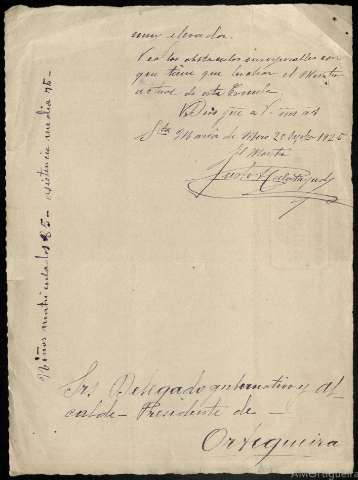 muy elevada.
Vea los obstaculos insuperables con
que tiene que luchar el Maestro
actual de esta Escuela.
Dios gue a V. ms as
Sta María de Mera 20 1925
El Maestro
Niños matriculados 85 - asistencia media 75 -
Srs Delegado gubernativo y Al
calde - Presidente de -
Ortigueira
AMOrtigueira